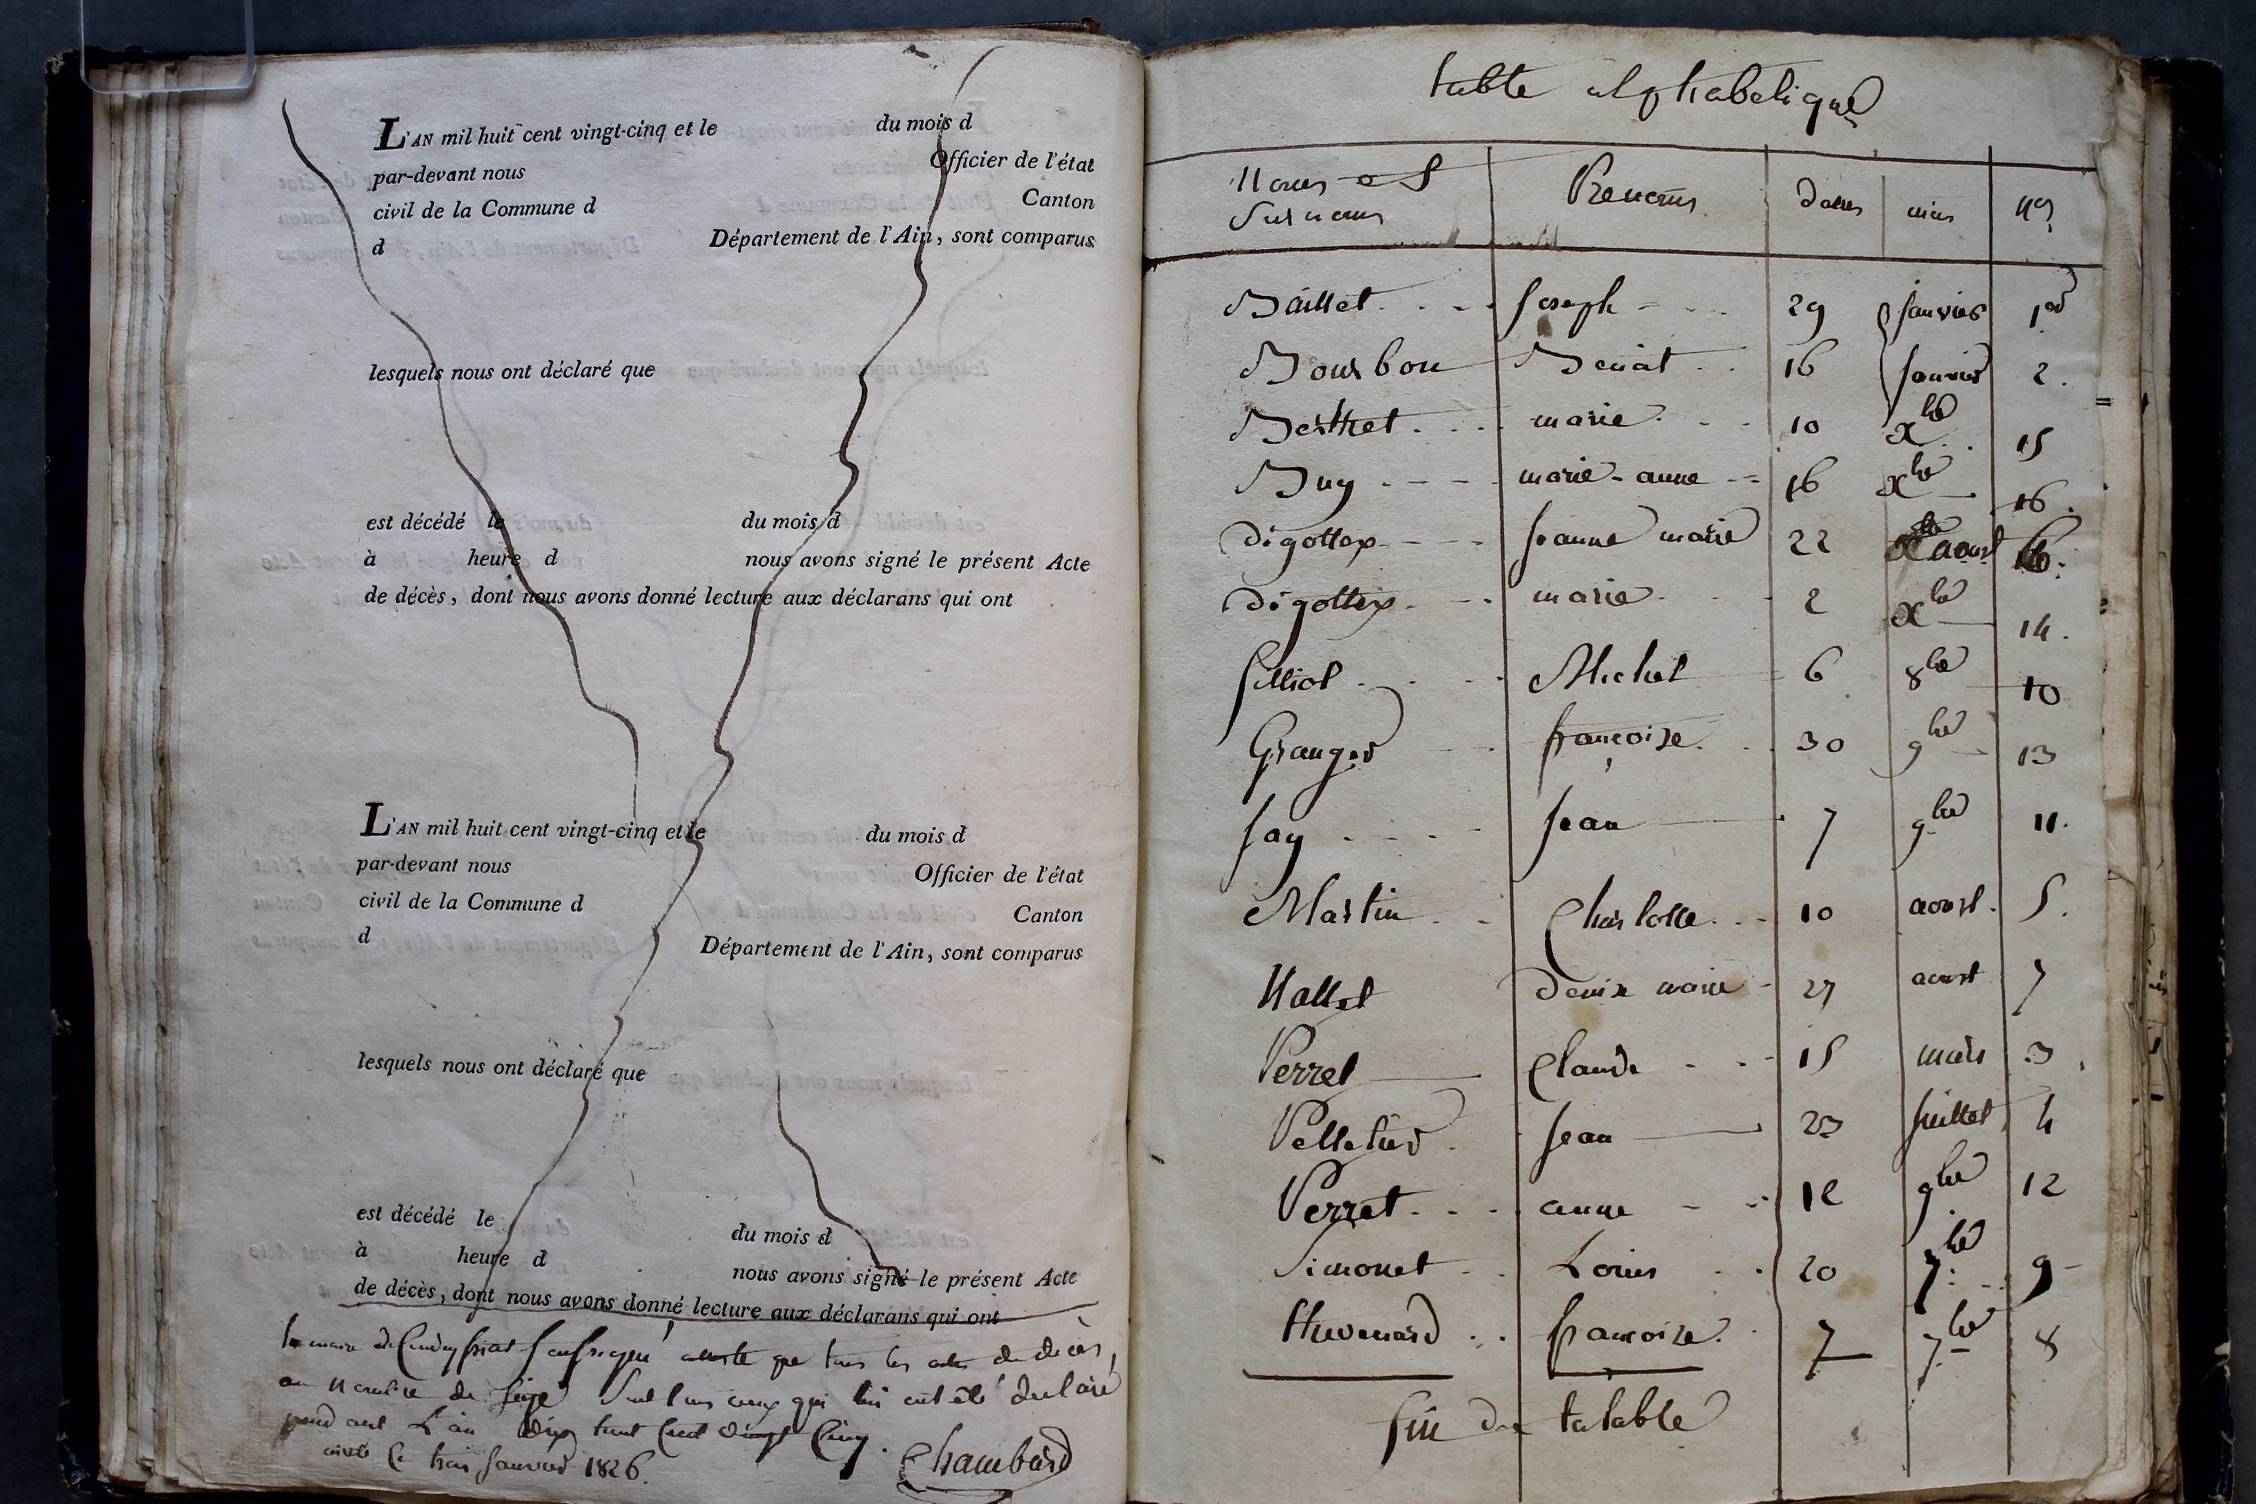 L'AN mil huit cent vingt-cinq et le du mois d
par-devant nous Officier de l'état
civil de la Commune d Canton
d Département de l'Ain, sont comparus
lesquels nous ont déclaré que
est décédé le du mois d
à heure d nous avons signé le présent Acte
de décès, dont nous avons donné lecture aux déclarans qui ont
L'AN mil huit cent vingt-cinq et le du mois d
par-devant nous Officier de l'état
civil de la Commune d Canton
d Département de l'Ain, sont comparus
lesquels nous ont déclaré que
est décédé le du mois d
à heure d nous avons signé le présent Acte
de décès, dont nous avons donné lecture aux déclarans qui ont
le maire de atteste que tous les actes de décès,
au nombre de seize sont tous ceux qui lui ont été declaré
pendant L'an huit cent vingt Cinq.
le trois janvier 1826. Chambard
table alphabetique
Noms et Surnoms Prenoms dattes mois Nos
Baillet Joseph 29 janvier 1er
Bourbon Benoit 16 janvier 2.
Berthet marie 10 xbre 15
Buy marie-anne 16 xbre 16.
digottex jeanne marie 22 aoust 6.
digottex marie 2 xbre 14.
filliol Michel 6 8bre 10
Granger françoise 30 9bre 13
jay jean 7 9bre 11.
Martin Charlotte 10 aoust. 5.
Nallet denise marie 27 aoust 7
Perret Claude 15 mars 3
Pelletier jean 23 juillet 4
Perret anne 12 9bre 12
Simonet Louis 20 7bre 9
thevenard françoise 7 7bre 8
fin de la table